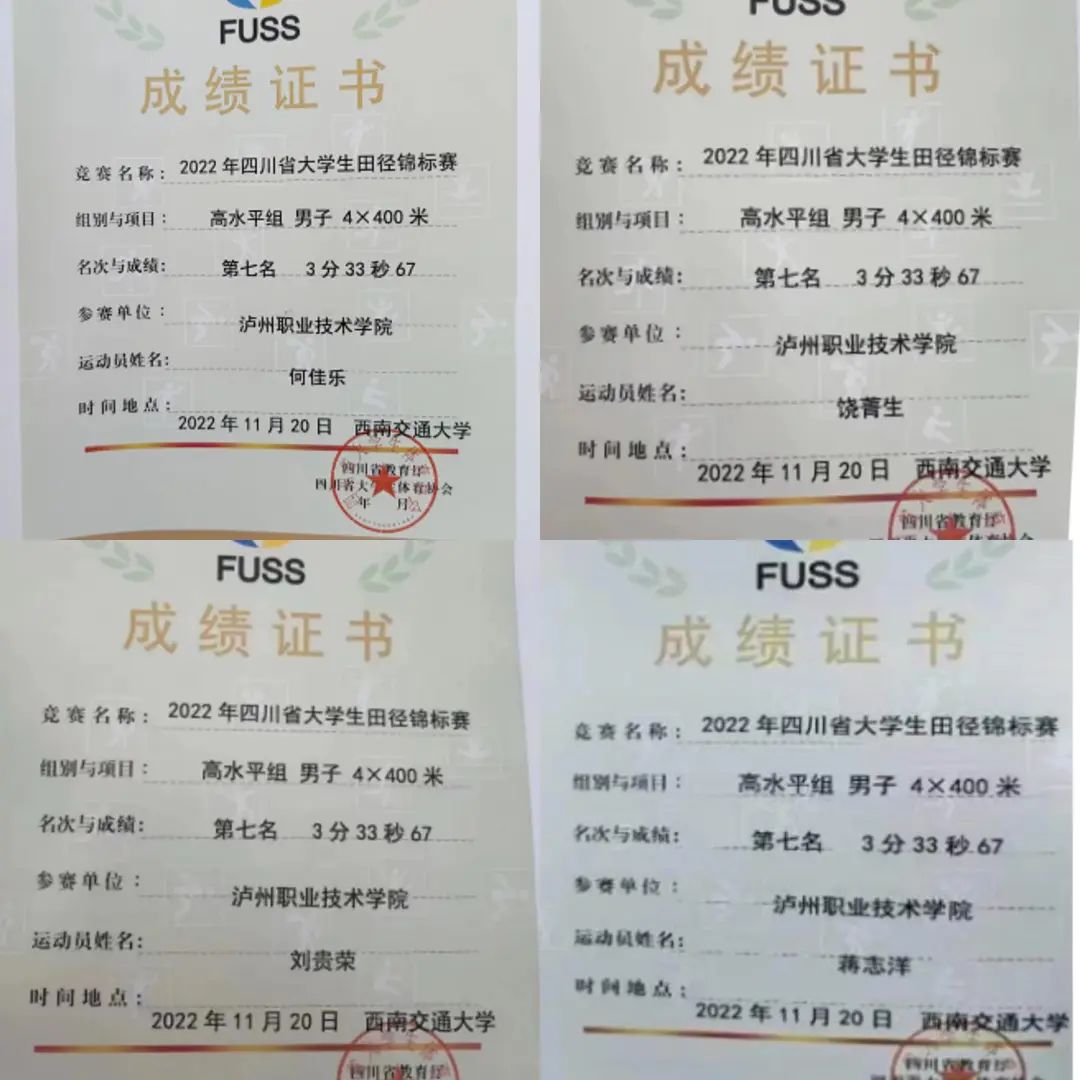 FUSS
成绩证书
竞赛名称： 2022年四川省大学生田径锦标赛
组别与项目： 高水平组 男子 4×400米
名次与成绩： 第七名 3分33秒67
参赛单位： 泸州职业技术学院
运动员姓名： 何佳乐
时间地点： 2022年11月20日 西南交通大学
四川省教育厅
四川省大学生体育协会
年 月
FUSS
成绩证书
竞赛名称： 2022年四川省大学生田径锦标赛
组别与项目： 高水平组 男子 4×400米
名次与成绩： 第七名 3分33秒67
参赛单位： 泸州职业技术学院
运动员姓名： 饶菁生
时间地点： 2022年11月20日 西南交通大学
四川省教育厅
FUSS
成绩证书
竞赛名称： 2022年四川省大学生田径锦标赛
组别与项目： 高水平组 男子 4×400米
名次与成绩： 第七名 3分33秒67
参赛单位： 泸州职业技术学院
运动员姓名： 刘贵荣
时间地点： 2022年11月20日 西南交通大学
四川省教育厅
FUSS
成绩证书
竞赛名称： 2022年四川省大学生田径锦标赛
组别与项目： 高水平组 男子 4×400米
名次与成绩： 第七名 3分33秒67
参赛单位： 泸州职业技术学院
运动员姓名： 蒋志洋
时间地点： 2022年11月20日 西南交通大学
四川省教育厅